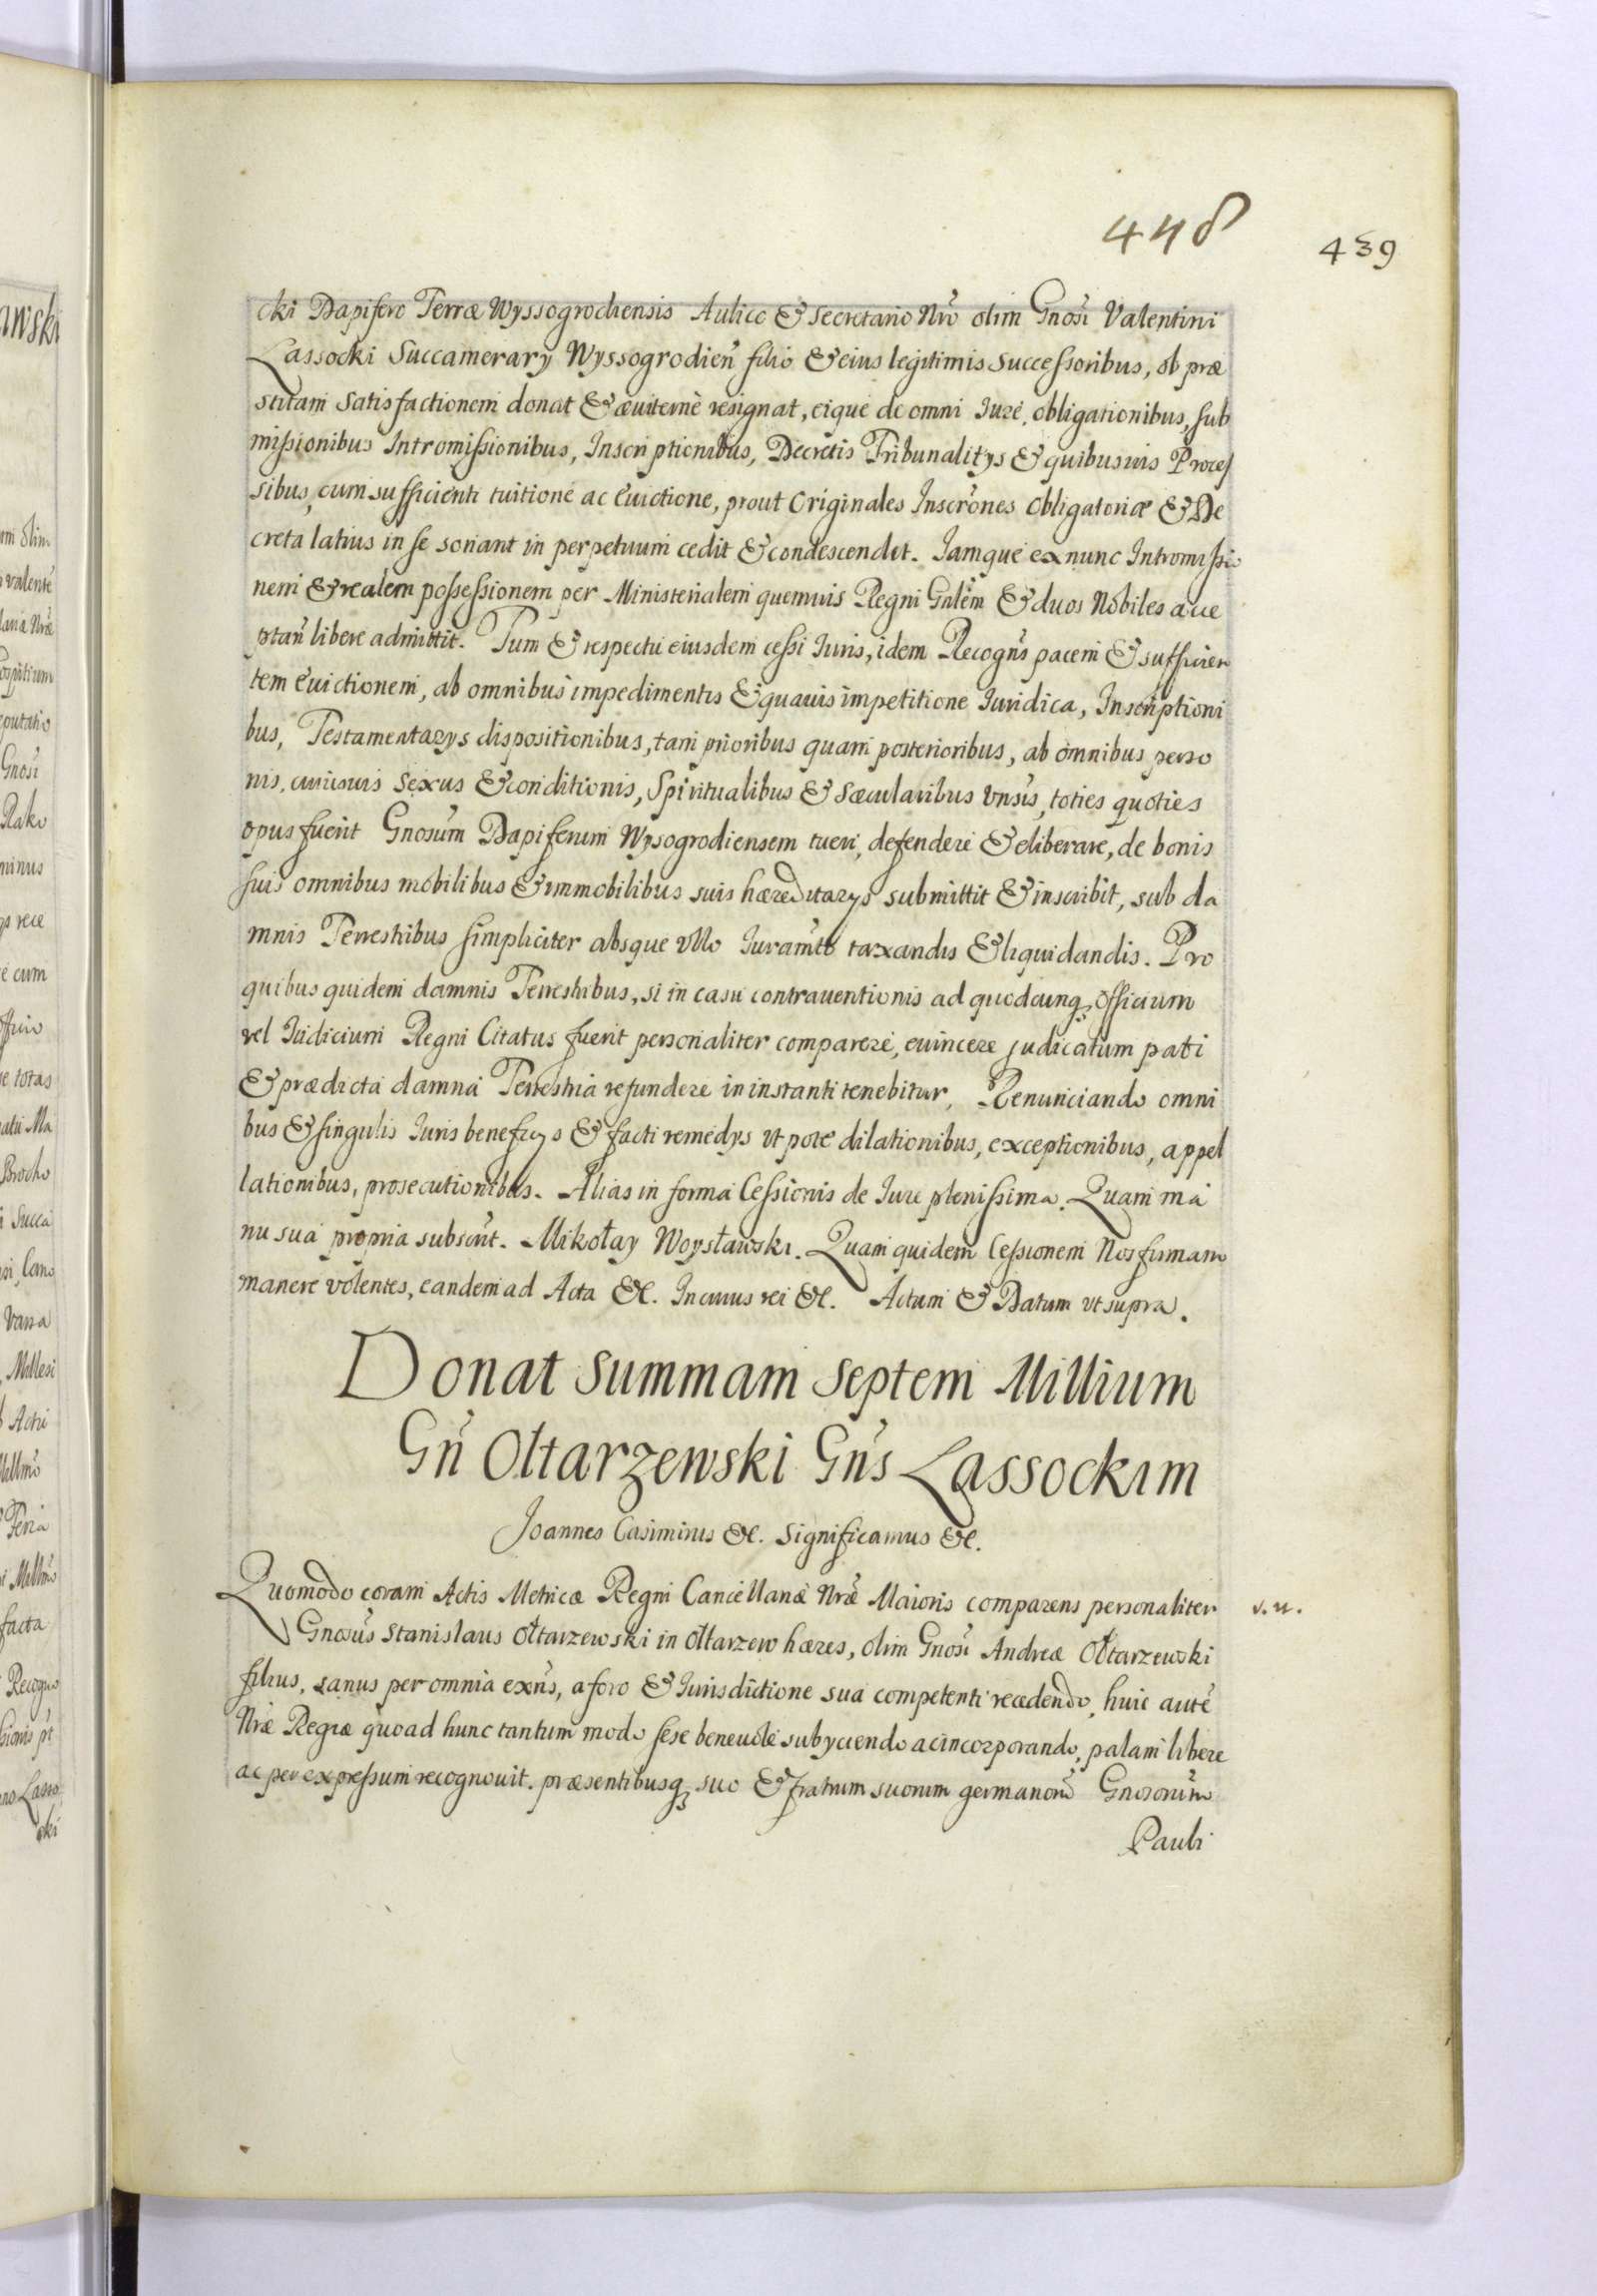 448
439
cki Dapifero Terræ Wyssogrodiensis Aulico & Secretario Nrō olim Gnosi Valentini
Lassocki Succamerarÿ Wyssogrodień filio & eius legitimis Successoribus, ob præ
stitam Satisfactionem donat & æuiternè resignat, eique de omni Iure, obligationibus, sub
missionibus Intromissionibus, Inscriptionibus, Decretis Tribunalitÿs & quibusuis Proces
sibus, cum sufficienti tuitione ac euictione, prout Originales Inscrōnes Obligatoriæ & De
creta latius in se sonant in perpetuum cedit & condescendit. Iamque ex nunc Intromissio
nem & realem possessionem per Ministerialem quemuis Regni Gnlēm & duos Nobiles acce
ptań libere admittit. Tum & respectu eiusdem cessi Iuris, idem Recogńs pacem & sufficien
tem euictionem, ab omnibus impedimentis & quauis impetitione Iuridica, Inscriptioni
bus, Testamentarÿs dispositionibus, tam prioribus quam posterioribus, ab omnibus perso
nis, cuiusuis Sexus & conditionis, Spiritualibus & Sæcularibus vnsis, toties quoties
opus fuerit Gnosum Dapiferum Wysogrodiensem tueri, defendere & eliberare, de bonis
suis omnibus mobilibus & immobilibus suis hæreditarÿs submittit & inscribit, sub da
mnis Terrestribus simpliciter absque vllo Iuramto taxandis & liquidandis. Pro
quibus quidem damnis Terrestribus, si in casu contrauentionis ad quodcunq officium
vel Iudicium Regni Citatus fuerit personaliter comparere, euincere judicatum pati
& prædicta damna Terrestria refundere in instanti tenebitur, Renunciando omni
bus & singulis Iuris beneficÿs & facti remedÿs vt pote dilationibus, exceptionibus, appel
lationibus, prosecutionibus. Alias in forma Cessionis de Iure plenissima. Quam ma
nu sua propria subscrit. Mikołay Woysławski. Quam quidem Cessionem Nos firmam
manere volentes, eandem ad Acta &c. In cuius rei &c. Actum & Datum vt supra.
Donat Summam Septem Millium
Gń Ołtarzewski Gńs Lassockim
Joannes Casimirus &c. Significamus &c.
Quomodo coram Actis Metricæ Regni Cancellariæ Nræ Maioris comparens personaliter
v. u.
Gnosus Stanislaus Ołtarzewski in Ołtarzew hæres, olim Gnosi Andreæ Ołtarzewski
filius, sanus per omnia exńs, a foro & Iurisdictione sua competenti recedendo, huic autē
Nræ Regiæ quoad hunc tantum modo sese beneuole subÿciendo ac incorporando, palam libere
ac per expressum recognouit. præsentibusq suo & fratrum suorum germanorū Gnosorum
Pauli